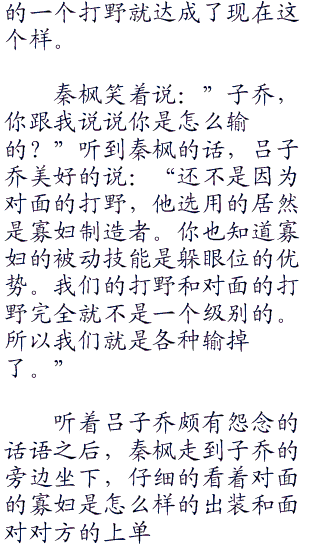 的一个打野就达成了现在这
个样。
秦枫笑着说：”子乔，
你跟我说说你是怎么输
的？”听到秦枫的话，吕子
乔美好的说：“还不是因为
对面的打野，他选用的居然
是寡妇制造者。你也知道寡
妇的被动技能是躲眼位的优
势。我们的打野和对面的打
野完全就不是一个级别的。
所以我们就是各种输掉
了。”
听着吕子乔颇有怨念的
话语之后，秦枫走到子乔的
旁边坐下，仔细的看着对面
的寡妇是怎么样的出装和面
对对方的上单